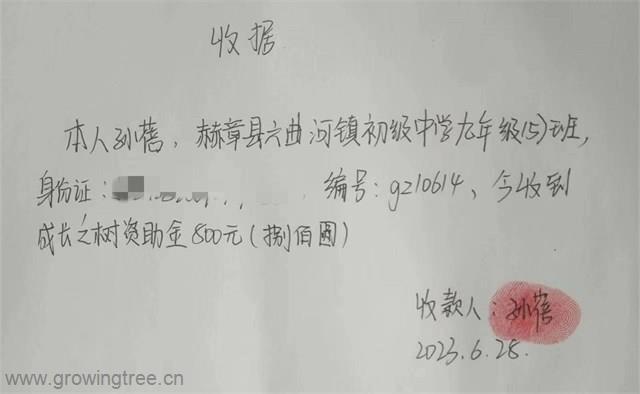 收据
本人孙蓓，赫章县六曲河镇初级中学九年级(5)班，
身份证： 编号：gz10614、今收到
成长之树资助金800元(捌佰圆)
收款人：孙蓓
2023.6.28.
www.growingtree.cn